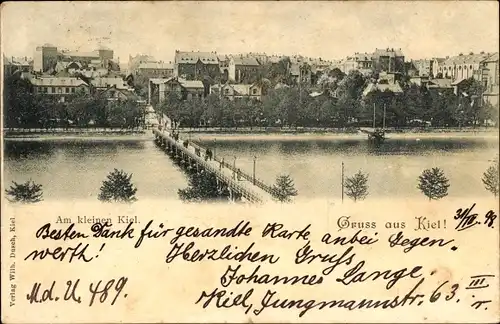 Am kleinen Kiel.
Gruss aus Kiel!
31/VII. 98.
Besten Dank für gesandte Karte anbei Gegen-
werth! Herzlichen Gruss
Johannes Lange.
Md. U. 489.
Kiel, Jungmannstr. 63. III r.
Verlag Wilh. Dusch, Kiel.